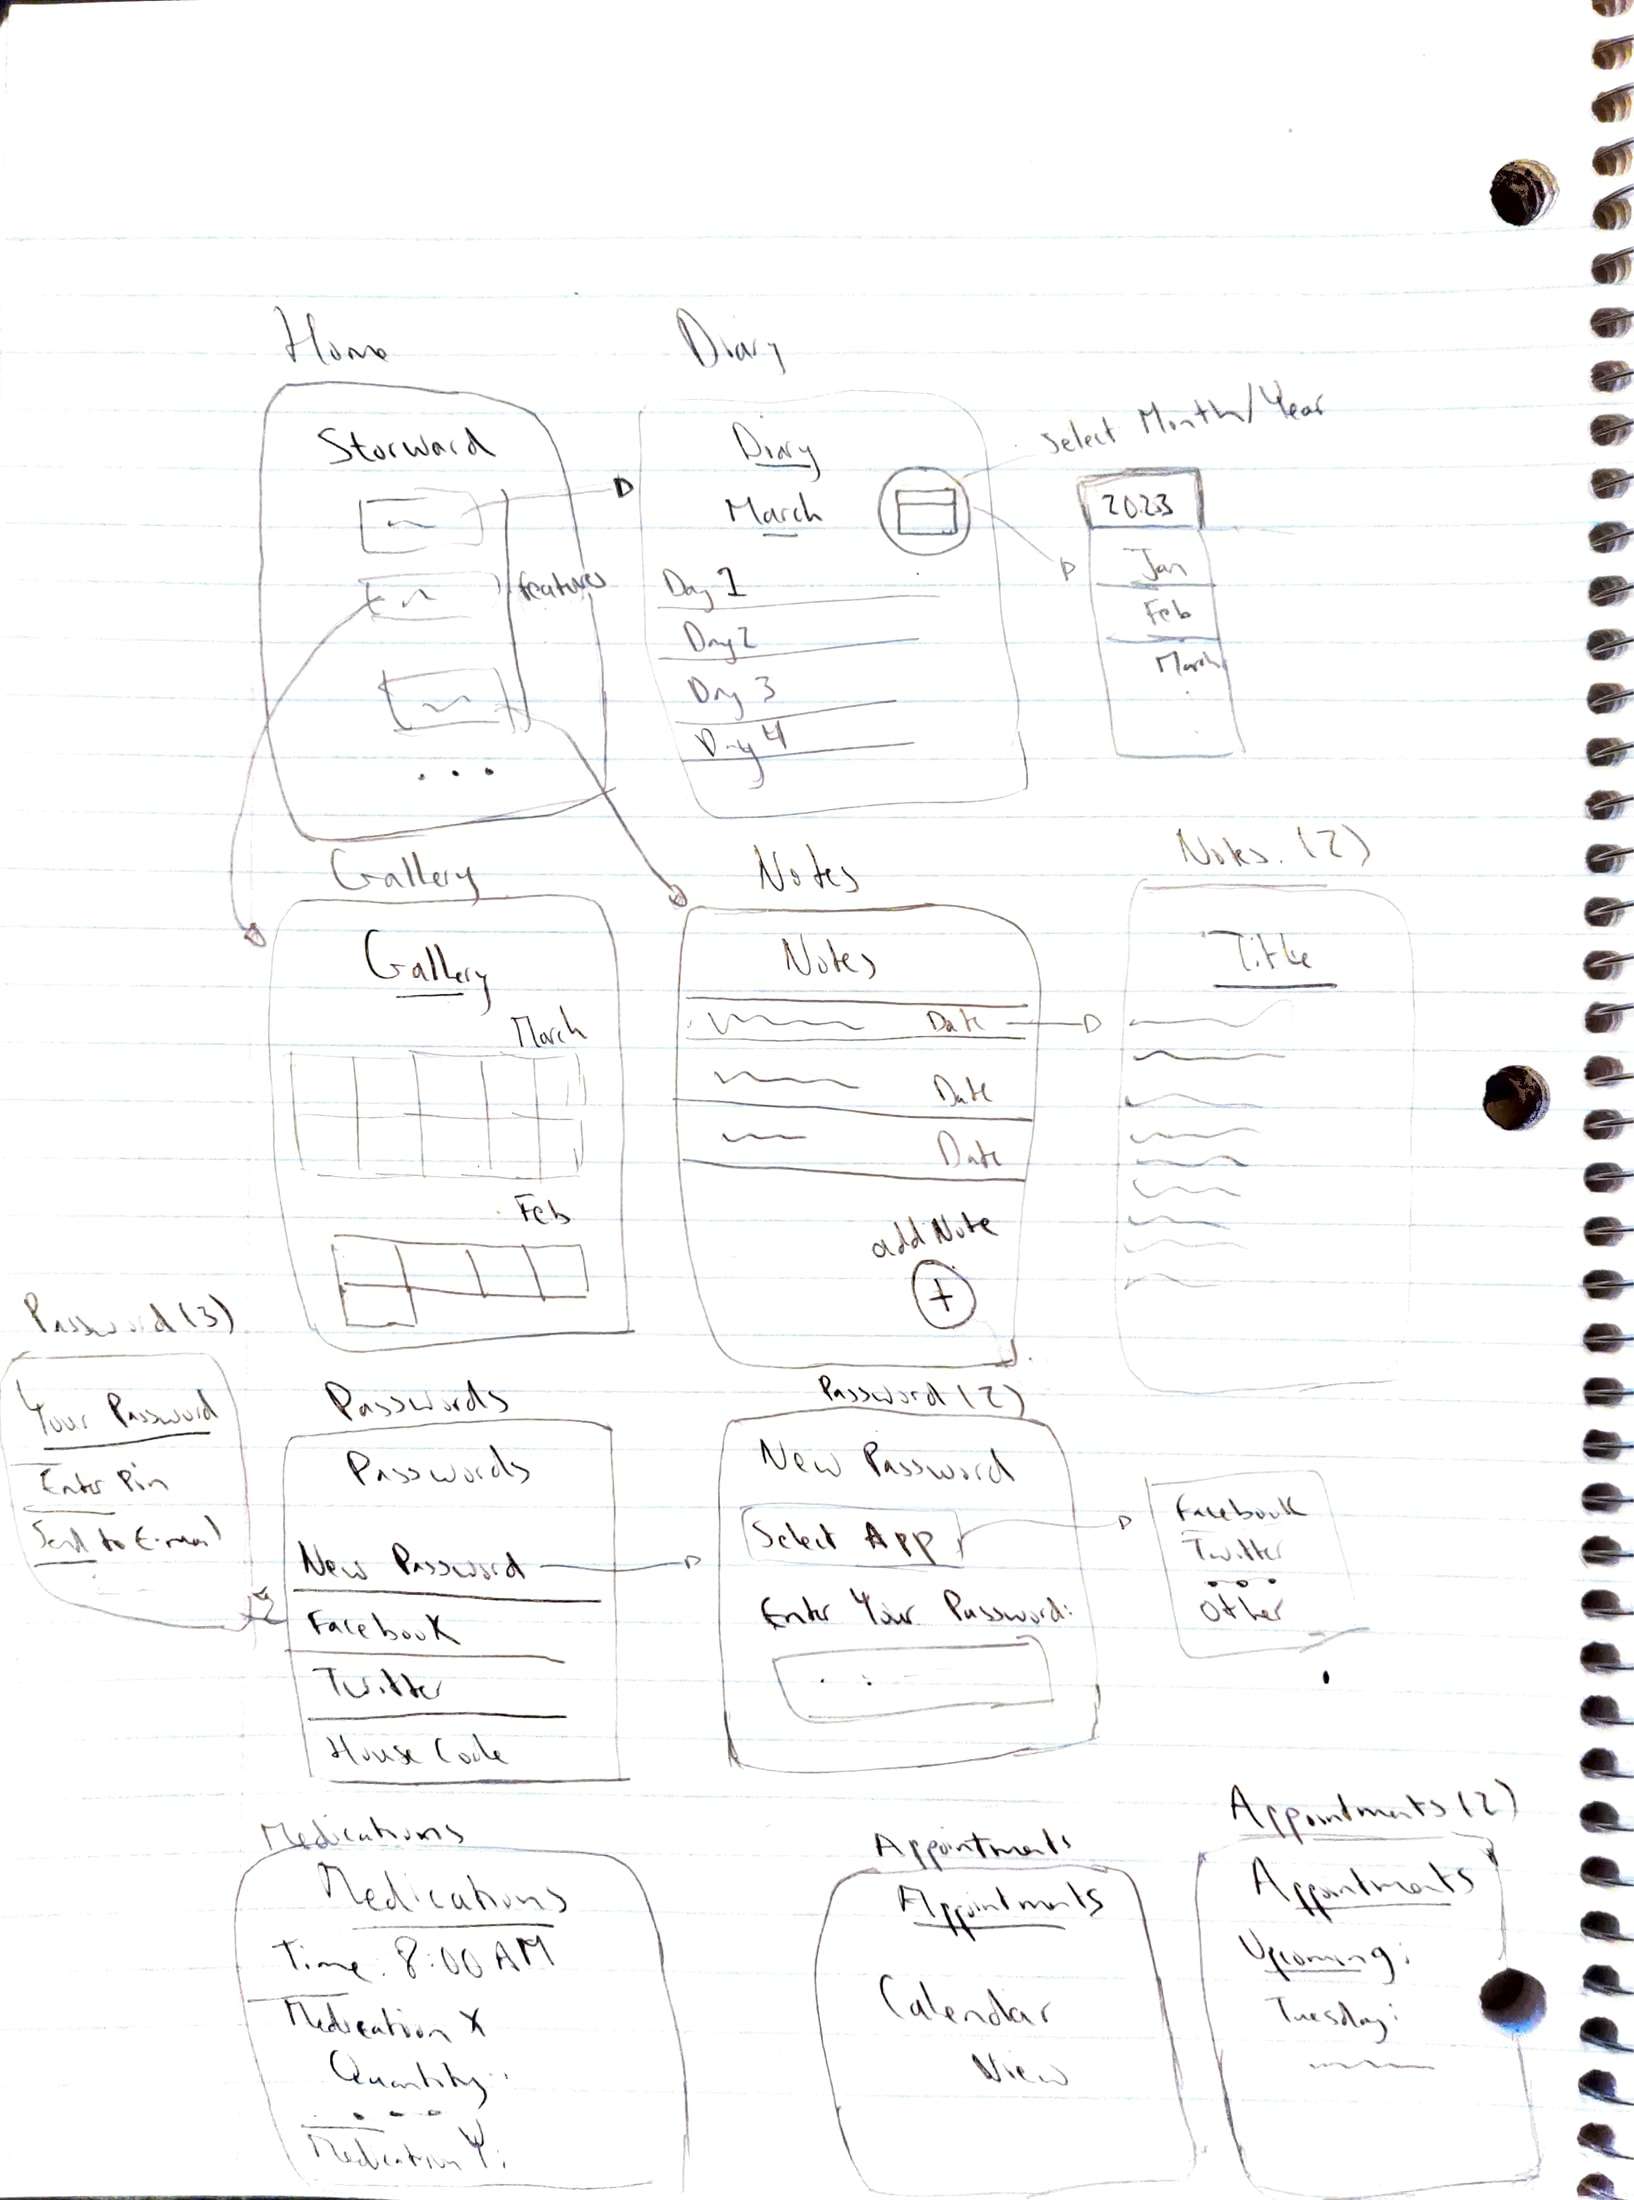 Home
Storward
features
Diary
Diary
March
Day 1
Day 2
Day 3
Day 4
Select Month/Year
2023
Jan
Feb
March
Gallery
Gallery
March
Feb
Notes
Notes
Date
Date
Date
add Note
+
Notes (2)
Title
Password (3)
Your Password
Enter Pin
Send to E-mail
Passwords
Passwords
New Password
Facebook
Twitter
House Code
Password (2)
New Password
Select App
Enter Your Password:
Facebook
Twitter
Other
Medications
Medications
Time: 8:00 AM
Medication X
Quantity:
Medication Y:
Appointments
Appointments
Calendar
View
Appointments (2)
Appointments
Upcoming:
Tuesday: